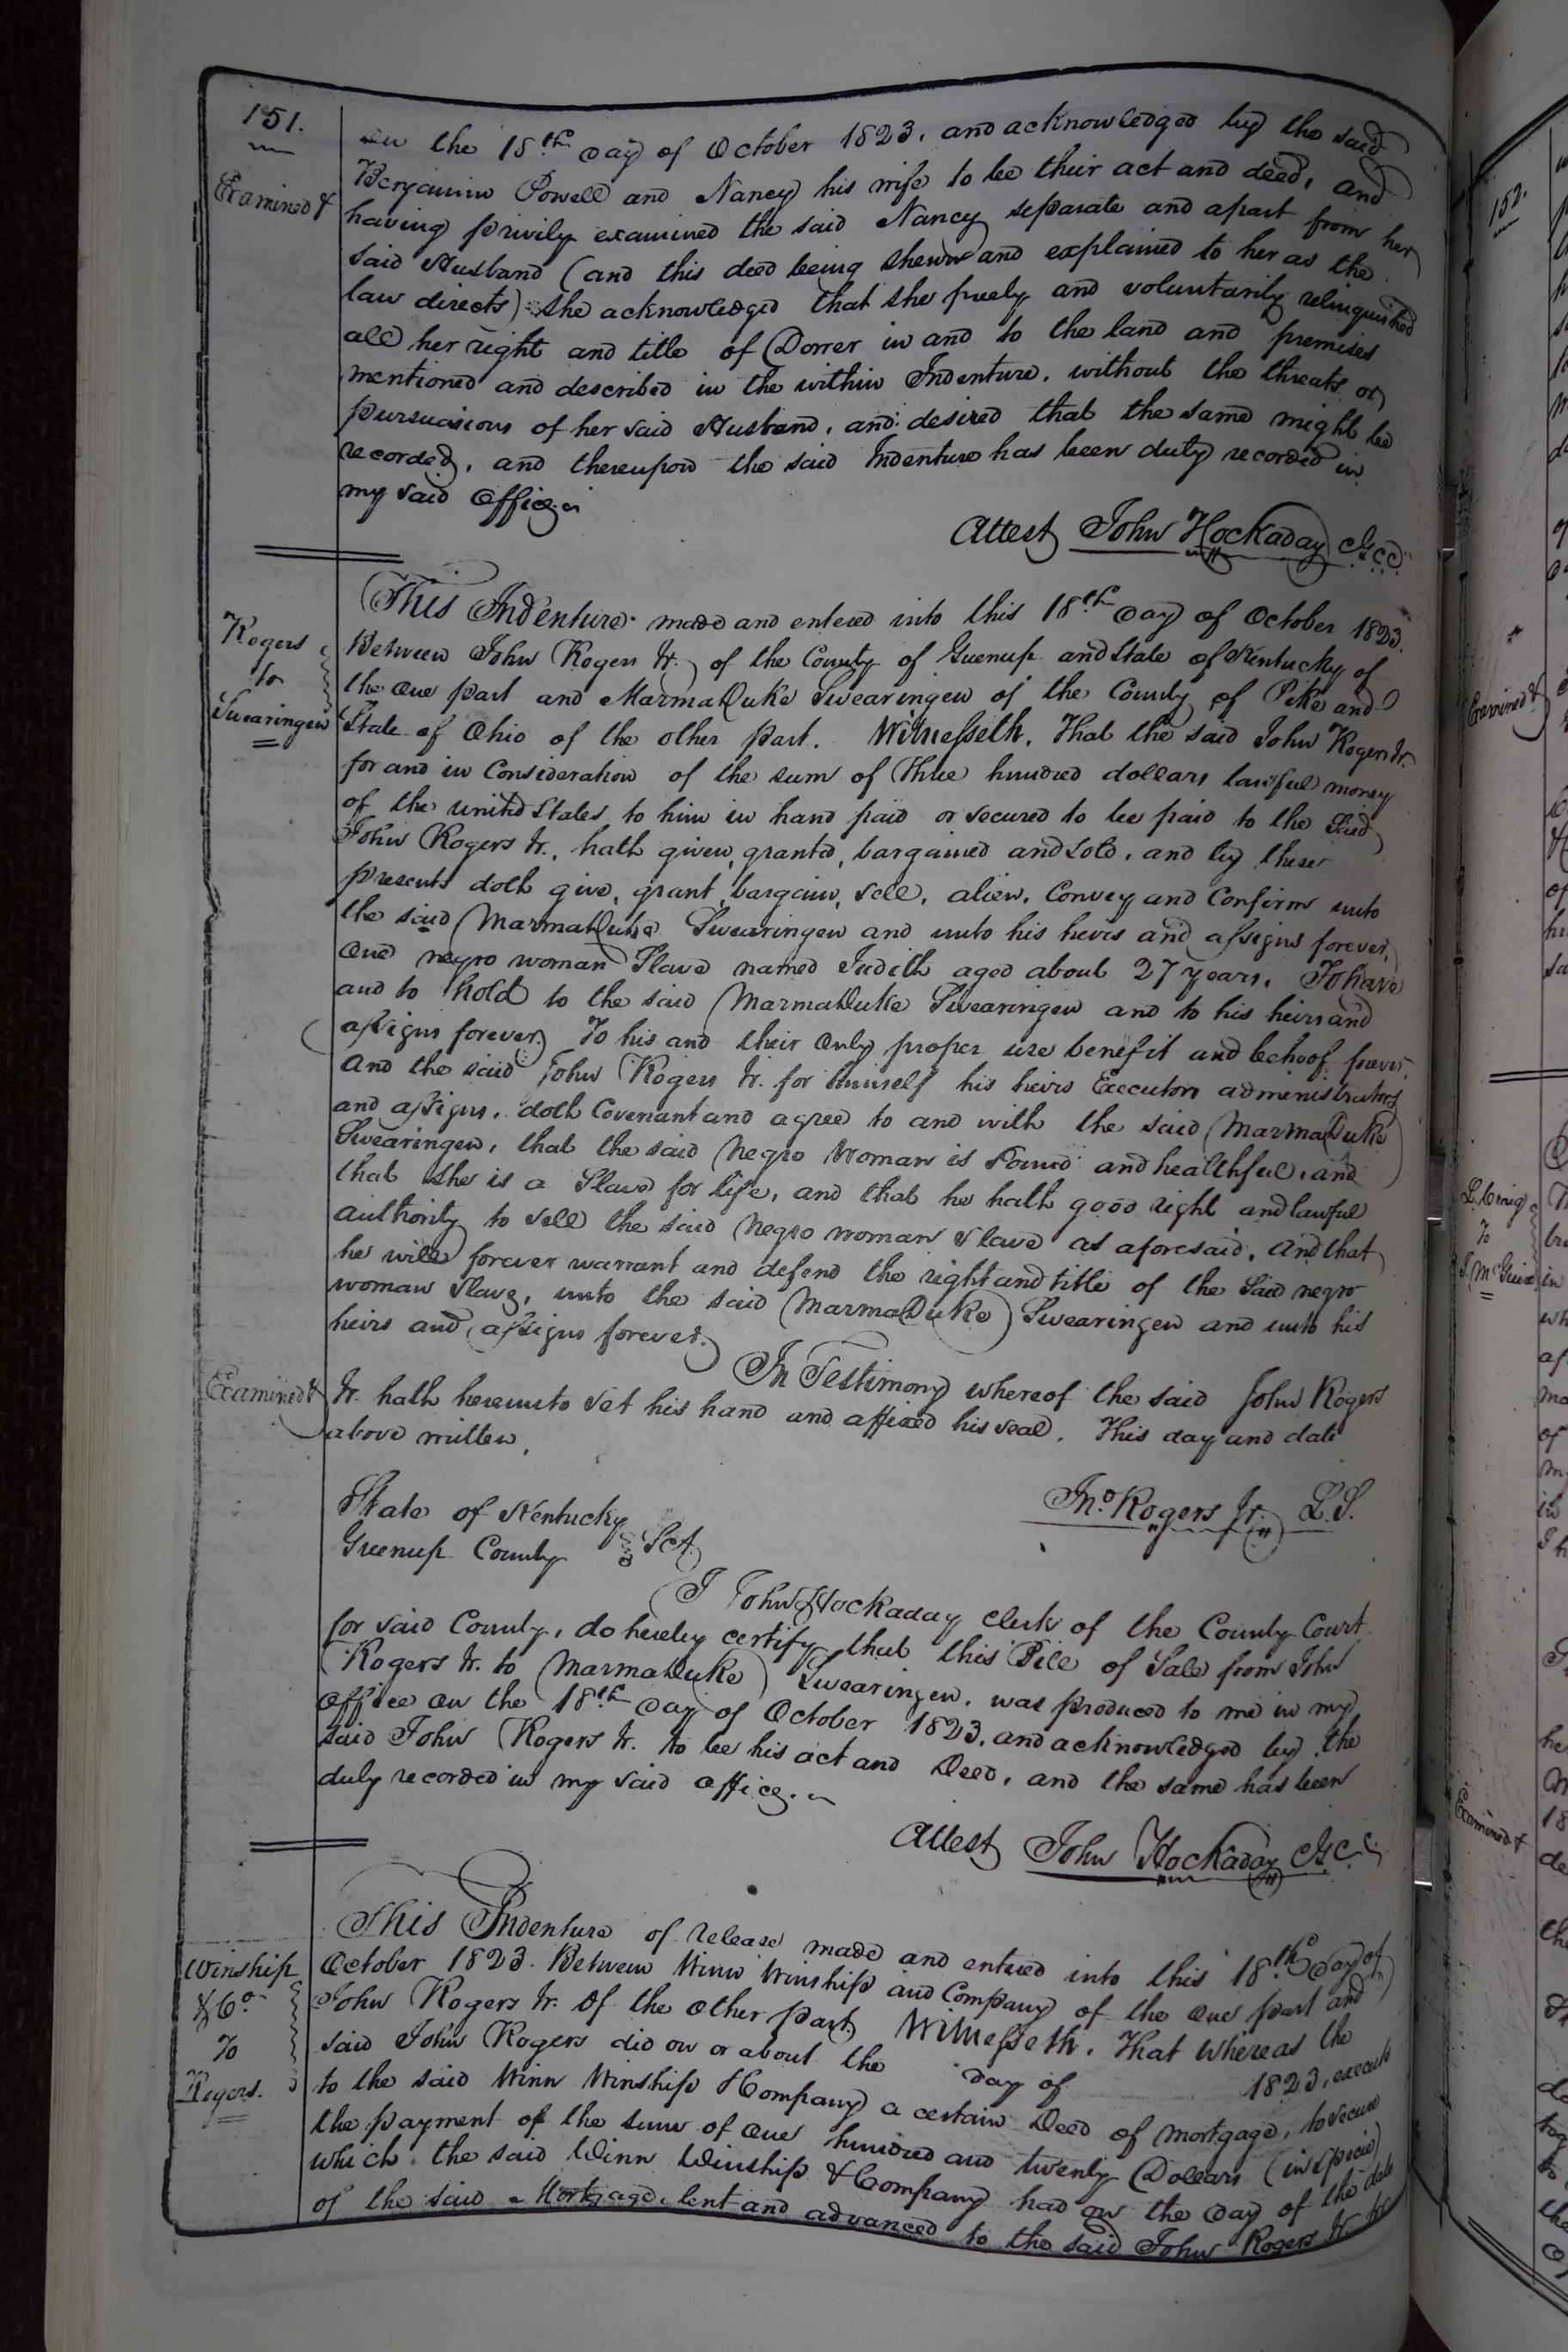 151.
on the 18th day of October 1823, and acknowledged by the said
Benjamin Powell and Nancy his wife to be their act and deed, and
Examined &
having privily examined the said Nancy separate and apart from her
said Husband (and this deed being shewn and explained to her as the
law directs) she acknowledged that she freely and voluntarily relinquished
all her right and title of Dorrer in and to the land and premises
mentioned and described in the within Indenture, without the threats or
pursuasions of her said Husband, and desired that the same might be
recorded, and thereupon the said Indenture has been duly recorded in
my said office.
Attest John Hockaday C.G.C.C.
This Indenture made and entered into this 18th day of October 1823.
Rogers
to
Swearingen
Between John Rogers Jr. of the County of Greenup and State of Kentucky of
the one part and MarmaDuke Swearingen of the County of Pike and
State of Ohio of the other part. Witnesseth, That the said John Rogers Jr.
for and in Consideration of the sum of three hundred dollars lawful money
of the united States to him in hand paid or secured to be paid to the Said
John Rogers Jr., hath given, granted, bargained and sold, and by these
presents doth give, grant, bargain, sell, alien, Convey and Confirm unto
the said MarmaDuke Swearingen and unto his heirs and assigns forever,
one negro woman Slave named Judith aged about 27 years, To have
and to hold to the said MarmaDuke Swearingen and to his heirs and
assigns forever. To his and their only proper use benefit and behoof forever,
and the said John Rogers Jr. for himself his heirs Executors administrators
and assigns, doth Covenant and agree to and with the said MarmaDuke
Swearingen, that the said Negro Woman is Sound and healthful, and
that she is a Slave for life, and that he hath good right and lawful
authority to sell the said Negro woman slave as aforesaid, and that
he will forever warrant and defend the right and title of the Said negro
woman Slave, unto the said MarmaDuke Swearingen and unto his
heirs and assigns forever.
In Testimony whereof the said John Rogers
Examined &
Jr. hath hereunto set his hand and affixed his seal, This day and date
above written,
Jno. Rogers Jr. L.S.
State of Kentucky
Greenup County Sct.
I John Hockaday Clerk of the County Court
for said County, do hereby certify that this Bill of Sale from John
Rogers Jr. to MarmaDuke Swearingen, was produced to me in my
office on the 18th day of October 1823, and acknowledged by the
said John Rogers Jr. to be his act and Deed, and the same has been
duly recorded in my said office.
Attest John Hockaday C.G.C.C.
This Indenture of release made and entered into this 18th day of
Winship
& Co.
To
Rogers.
October 1823. Between Winn Winship and Company of the one part and
John Rogers Jr. of the other part Witnesseth, That Whereas the
said John Rogers did on or about the day of 1823, execute
to the said Winn Winship & Company a certain Deed of mortgage, to secure
the payment of the sum of one hundred and twenty Dollars (in specie)
which the said Winn Winship & Company had on the day of the date
of the said Mortgage, lent and advanced to the said John Rogers Jr.
152.
Examined &
L. Craig
To
J. McGuire
Examined &